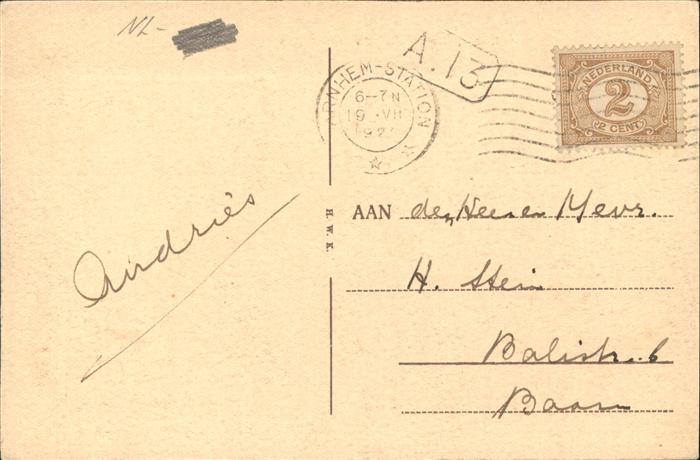 NL-
A.13
ARNHEM-STATION
6-7N
19 VII
192
NEDERLAND
2
2 CENT
Andriés
H. W. K.
AAN den Heer en Mevr.
H. Stein
Balistr. 6
Baarn